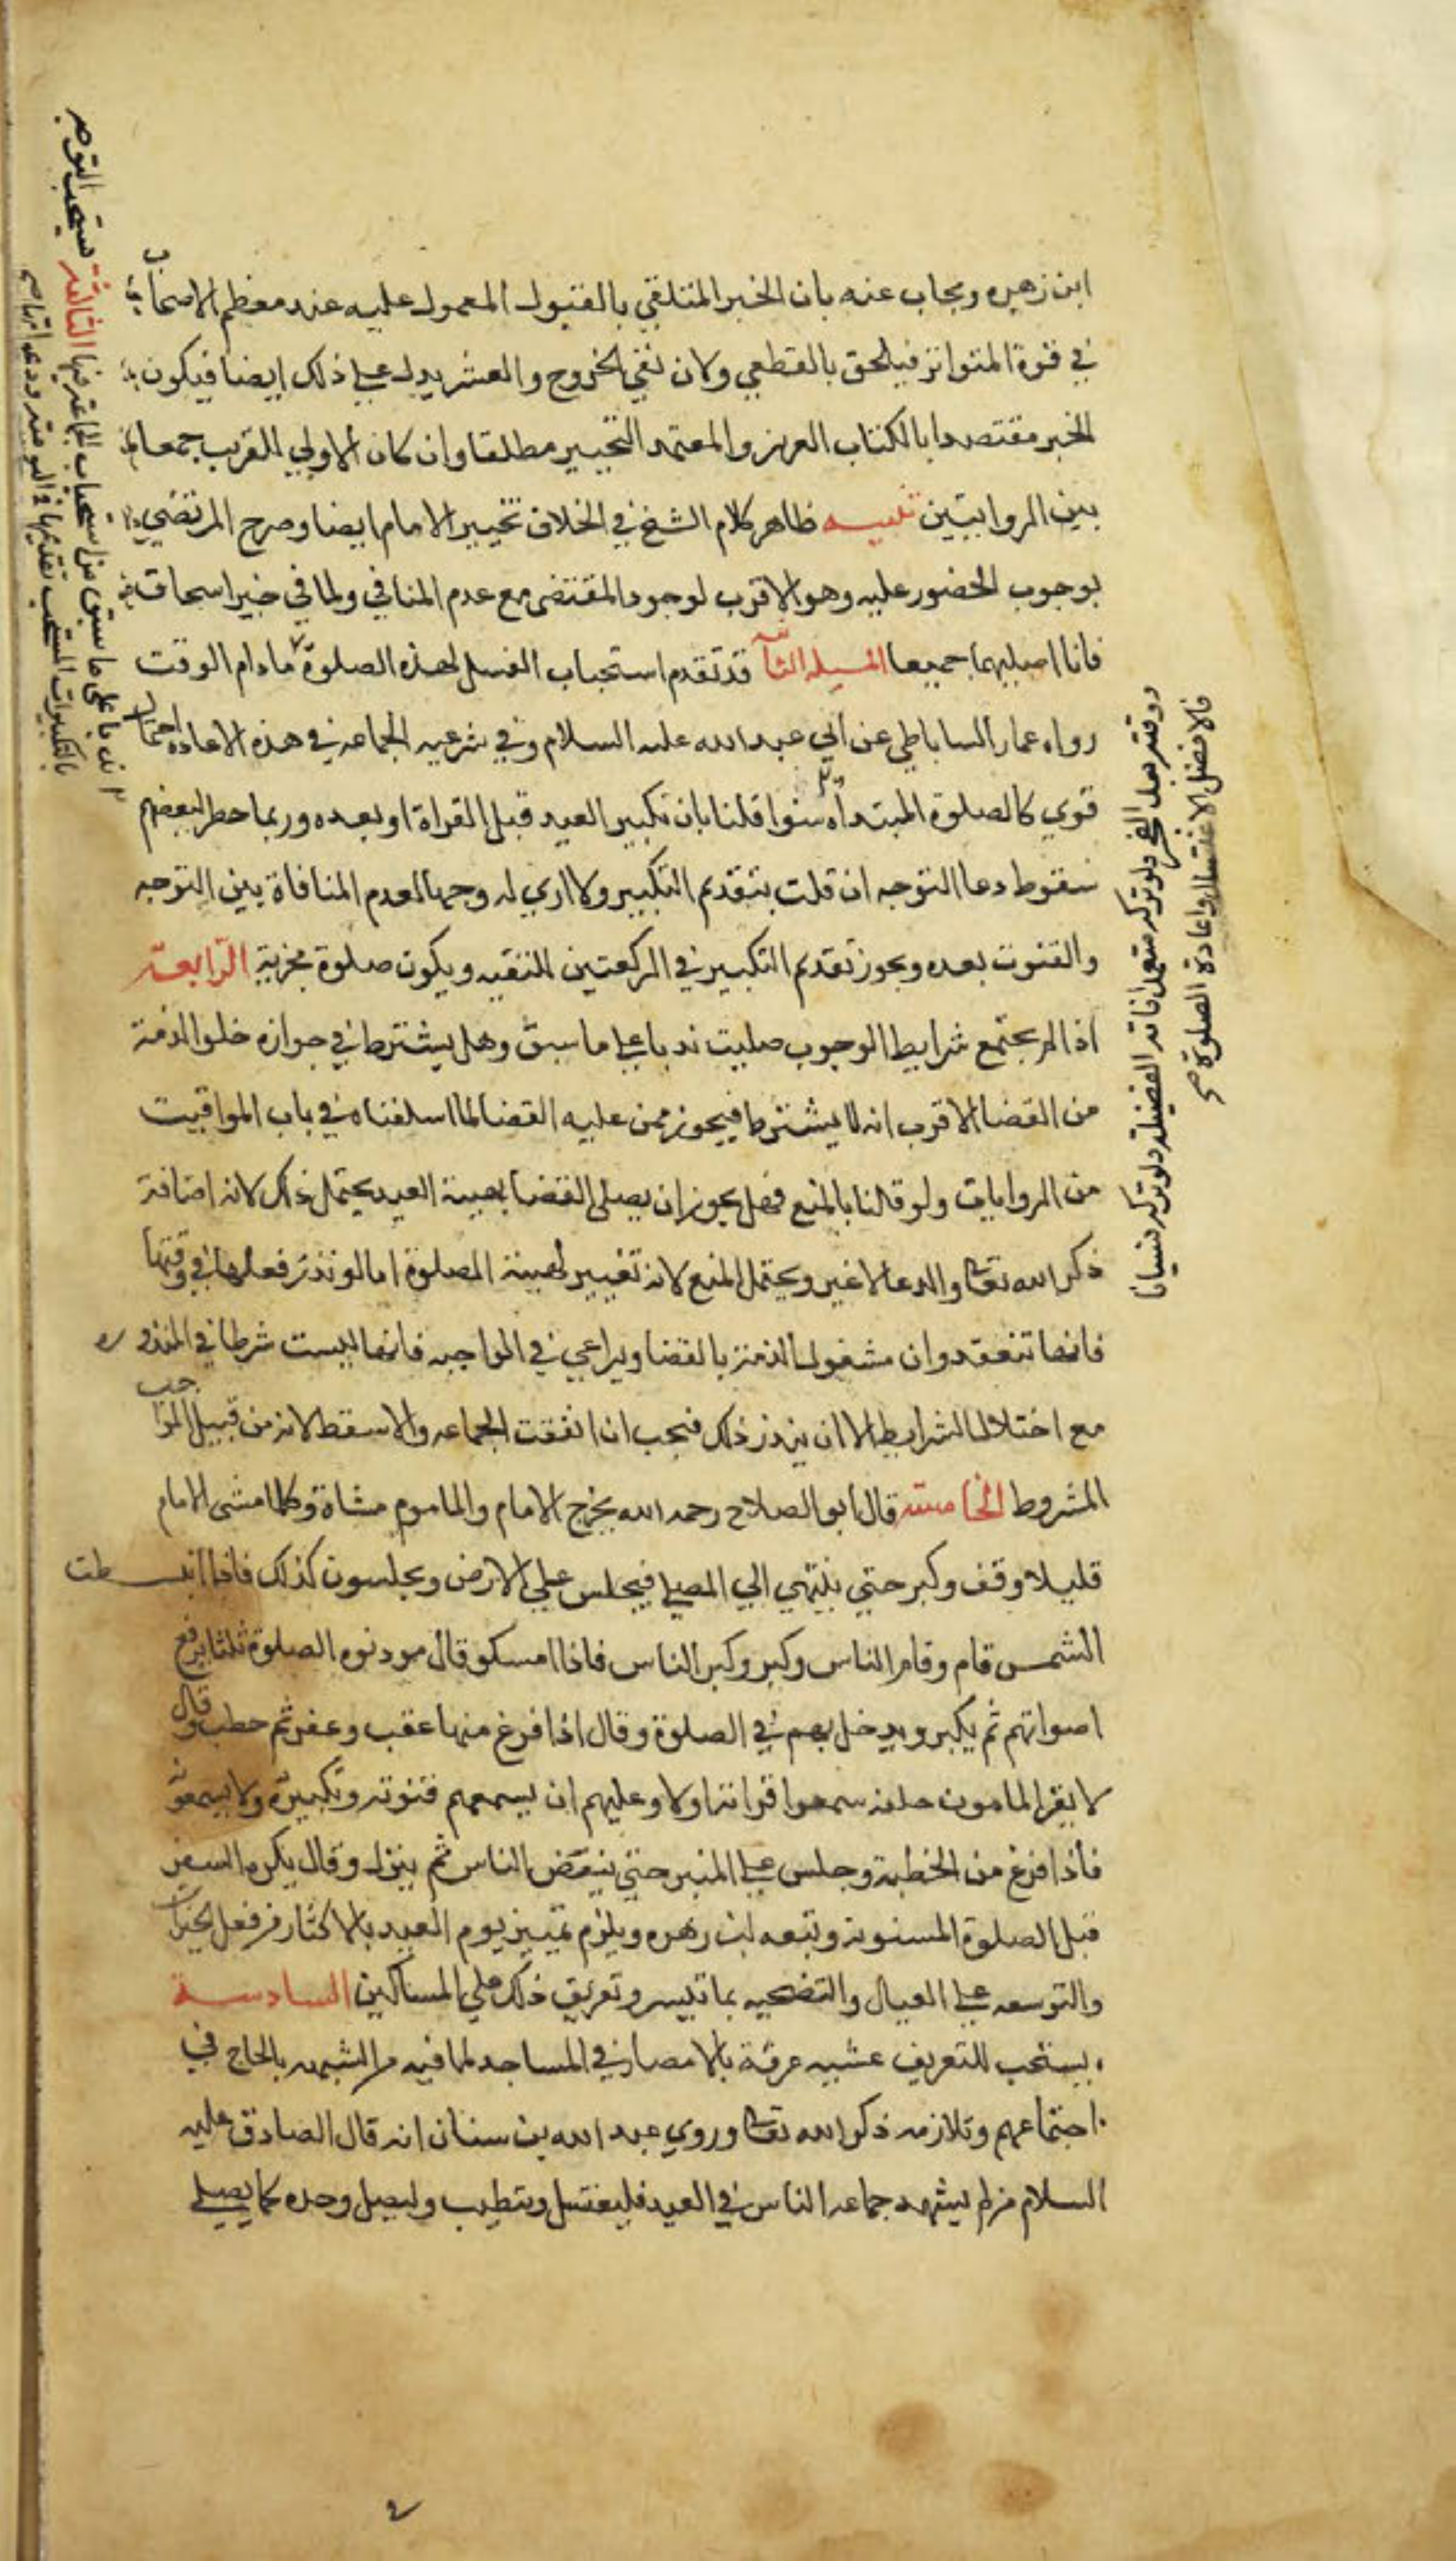 ابن زهره ويجاب عنه بان الخبر المتلقي بالقبول المعمول عليه عند معظم الاصحاب
في قوة المتواتر فيلحق بالقطعي ولان نفي الخروج والعسر يدل علي ذلك ايضا فيكون
الخبر معتضدا بالكتاب العزيز والمعتمد التخيير مطلقا وان كان الاولي القريب جمعا
بين الروايتين تنبيه ظاهر كلام الشيخ في الخلاف تخيير الامام ايضا وصرح المرتضي
بوجوب الحضور عليه وهو الاقرب لوجود المقتضي مع عدم المنافي ولما في خبر اسحاق
فانا اصليهما جميعا المسيله الثا قد تقدم استحباب الغسل لهذه الصلوة مادام الوقت
رواه عمار الساباطي عن ابي عبد الله عليه السلام وفي شرعيه الجماعه في هذه الاعاده احتمال
قوي كالصلوة المبتداه سوا قلنا بان تكبير العيد قبل القراة او بعده وربما خطر لبعضهم
سقوط دعا التوجه ان قلت بتقديم التكبير ولا اري له وجها لعدم المنافاة بين التوجه
والقنوت بعده ويجوز تقديم التكبير في الركعتين للتقيه ويكون صلوة مجزية الرابعة
اذا لم يجتمع شرايط الوجوب صليت ندبا علي ما سبق وهل يشترط في جوازه خلو الذمة
من القضا الاقرب انه لا يشترط فيجوز ممن عليه القضا لما اسلفناه في باب المواقيت
من الروايات ولو قلنا بالمنع فهل يجوز ان يصلي القضا بهيئة العيد يحتمل ذلك لانه اضافة
ذكر الله تعا والدعا لا غير ويحتمل المنع لانه تغيير لهيئة الصلوة اما لو نذر فعلها في وقتها
فانها تنعقد وان مشغول الذمة بالقضا ويراعي في الواجبه فانها ليست شرطا في المنذوره
مع اختلال الشرايط الا ان ينذر ذلك فيجب ان اتفقت الجماعه والا سقط لانه من قبيل الواجب
المشروط الخامسة قال ابو الصلاح رحمه الله يخرج الامام والماموم مشاة وكلما مشي الامام
قليلا وقف وكبر حتي ينتهي الي المصلي فيجلس علي الارض ويجلسون كذلك فاذا انبسطت
الشمس قام وقام الناس وكبر وكبر الناس فاذا امسكو قال موذنوه الصلوة ثلثا يرفع
اصواتهم ثم يكبر ويدخل بهم في الصلوة وقال اذا فرغ منها عقب وعفر ثم خطب وقال
لا يقرا المامون خلفه سمعوا قراته او لا وعليهم ان يسمعهم قنوته وتكبيره ولا يسمعوه
فاذا فرغ من الخطبة وجلس علي المنبر حتي ينفض الناس ثم ينزل وقال يكره السفر
قبل الصلوة المسنونة وتبعه ابن زهره ويلزم تمييز يوم العيد بالاكثار من فعل الخيرات
والتوسعه علي العيال والتضحيه بما تيسر وتفريق ذلك علي المساكين السادسة
يستحب للتعريف عشيه عرفة بالامصار في المساجد لما فيه من الشبه بالحاج في
اجتماعهم وتلازمه ذكر الله تعا وروي عبد الله بن سنان انه قال الصادق عليه
السلام من لم يشهد جماعه الناس في العيد فليغتسل ويتطيب وليصل وحده كما يصلي
ووقته بعد الفجر ولو تركه متعمدا فاته الفضيلة ولو تركه نسيانا
فالافضل الاغتسال واعادة الصلوة صح
ندبا علي ما سبق من استحباب الجماعة فيها الثالثة يستحب التوجه
بالتكبيرات المستحب تقديمها في اليومية ودعواتها صح